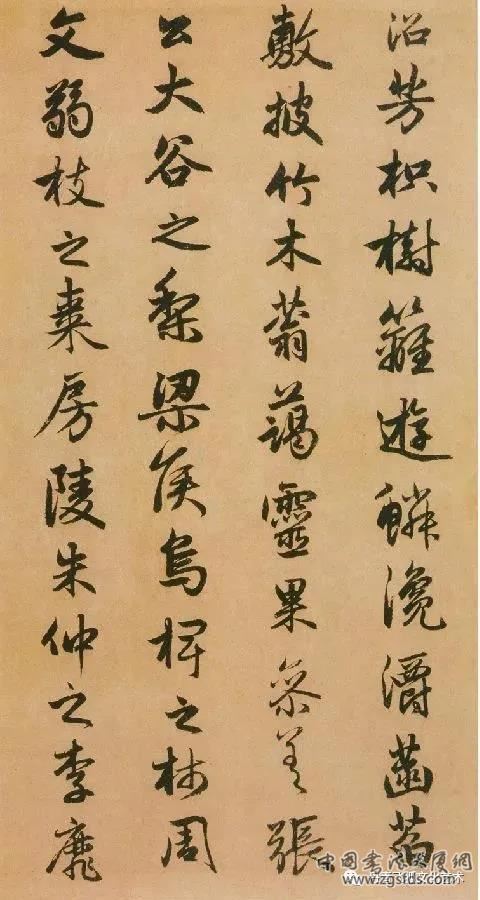 沼芳枳樹籬遊鱗瀺灂菡萏
敷披竹木蓊藹靈果參差張
公大谷之梨梁侯烏椑之柿周
文弱枝之棗房陵朱仲之李靡
www.zgsfds.com